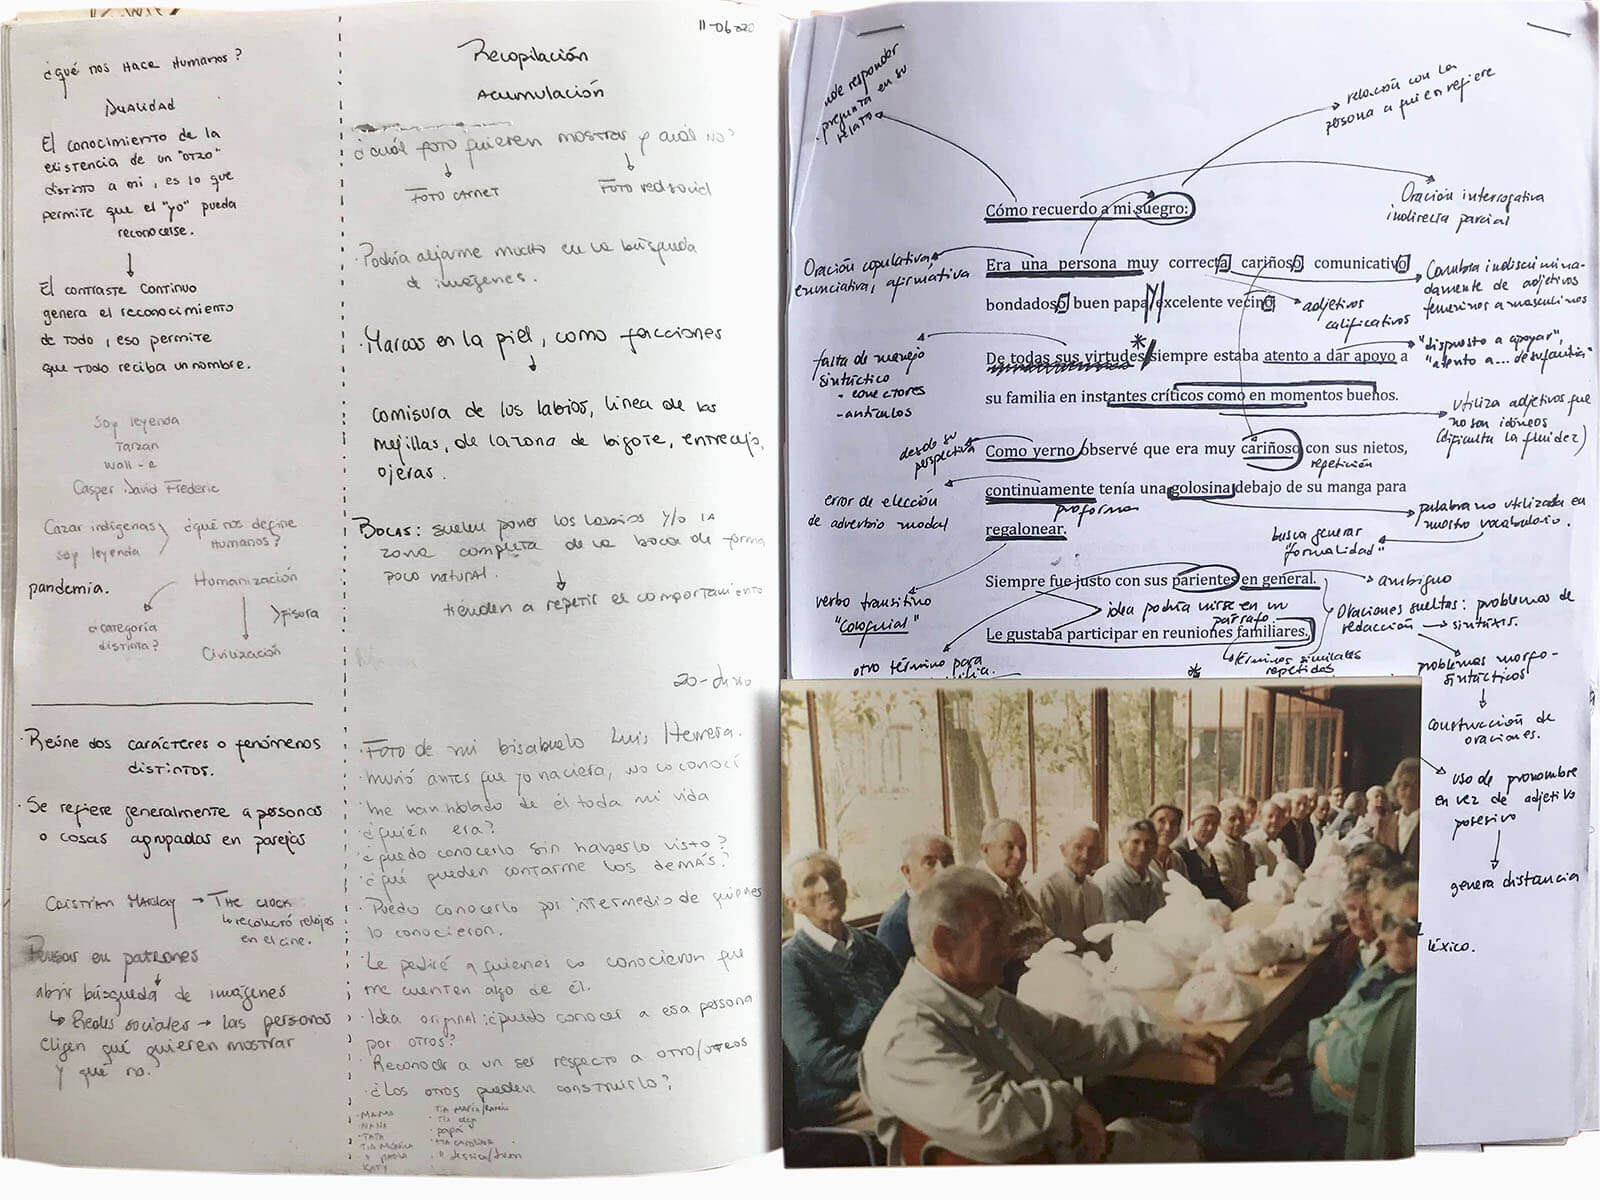 ¿qué nos Hace Humanos?
DUALIDAD
El conocimiento de la
existencia de un "otro"
distinto a mi, es lo que
permite que el "yo" pueda
reconocerse.
El contraste continuo
genera el reconocimiento
de todo, eso permite
que todo reciba un nombre.
Soy leyenda
Tarzan
wall-e
Casper David Frederic
Cazar indígenas
soy leyenda
¿qué nos define
humanos?
pandemia.
Humanización
¿categoría
distinta?
fisora
Civilización
Reúne dos carácteres o fenómenos
distintos.
· Se refiere generalmente a personas
o cosas agrupadas en parejas
Cristian Marclay → The clock
↳ recolectó relojes
en el cine.
Pensar en patrones
abrir búsqueda de imágenes
↳ Redes sociales → las personas
eligen qué quieren mostrar
y qué no.
11-06
Recopilación
Acumulación
¿cuál foto quieren mostrar y cuál no?
Foto carnet
Foto red social
· Podría alejarme mucho en la búsqueda
de imágenes.
· Marcas en la piel, como facciones
comisura de los labios, línea de las
mejillas, de la zona de bigote, entrecejo,
ojeras.
Bocas: suelen poner los labios y/o la
zona completa de la boca de forma
poco natural.
tienden a repetir el comportamiento
20-Junio
· Foto de mi bisabuelo Luis Herrera.
· murió antes que yo naciera, no lo conocí
· me han hablado de él toda mi vida
· ¿quién era?
· ¿puedo conocerlo sin haberlo visto?
· ¿qué pueden contarme los demás?
· Puedo conocerlo por intermedio de quienes
lo conocieron.
· Le pediré a quienes lo conocieron que
me cuenten algo de él.
· Idea original: ¿puedo conocer a esa persona
por otros?
· Reconocer a un ser respecto a otro/otros
¿Los otros pueden construirlo?
· MAMA
· NANA
· TATA
· TIA Mónica
· " PAOLA
· KATY
· papá
· TIA CAROLINA
responder
pregunta en su
relato
relación con la
persona a quien refiere
Cómo recuerdo a mi suegro:
Oración interrogativa
indirecta parcial
Oración copulativa,
enunciativa, afirmativa
Era una persona muy correcta cariñoso comunicativo
bondadoso buen papa y excelente vecino
adjetivos
calificativos
Cambia indiscrimina-
damente de adjetivos
femeninos a masculinos
falta de manejo
sintáctico
- conectores
- artículos
De todas sus virtudes * siempre estaba atento a dar apoyo a
su familia en instantes críticos como en momentos buenos.
"dispuesto a apoyar",
Utiliza adjetivos que
no son idóneos
(dificulta la fluidez)
desde su
perspectiva
Como yerno observé que era muy cariñoso con sus nietos,
repetición
continuamente tenía una golosina debajo de su manga para
proforma
regalonear.
error de elección
de adverbio modal
palabra no utilizada en
nuestro vocabulario.
busca generar
"formalidad"
Siempre fue justo con sus parientes en general.
ambiguo
verbo transitivo
"coloquial"
idea podría unirse en un
párrafo.
Le gustaba participar en reuniones familiares.
Oraciones sueltas: problemas de
redacción → sintaxis.
otro término para
términos similares
repetidos
*
problemas morfo-
sintácticos
construcción de
oraciones.
uso de pronombre
en vez de adjetivo
posesivo
genera distancia
léxico.